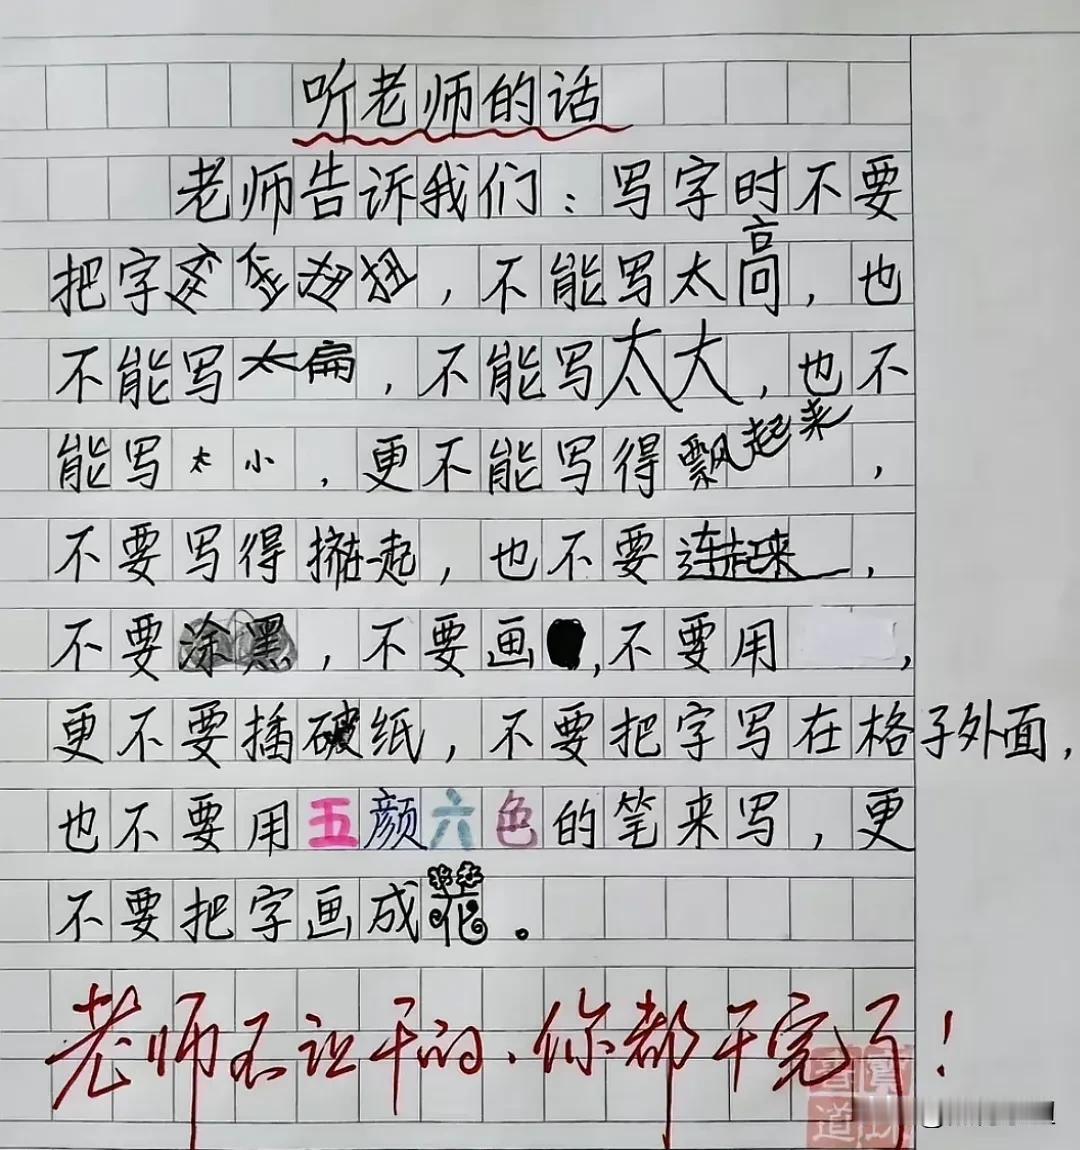 听老师的话
老师告诉我们：写字时不要
把字歪歪扭扭，不能写太高，也
不能写太扁，不能写太大，也不
能写太小，更不能写得飘起来，
不要写得挤在一起，也不要连起来，
不要涂黑，不要画，不要用，
更不要插破纸，不要把字写在格子外面，
也不要用五颜六色的笔来写，更
不要把字画成花。
老师不让干的、你都干完了！